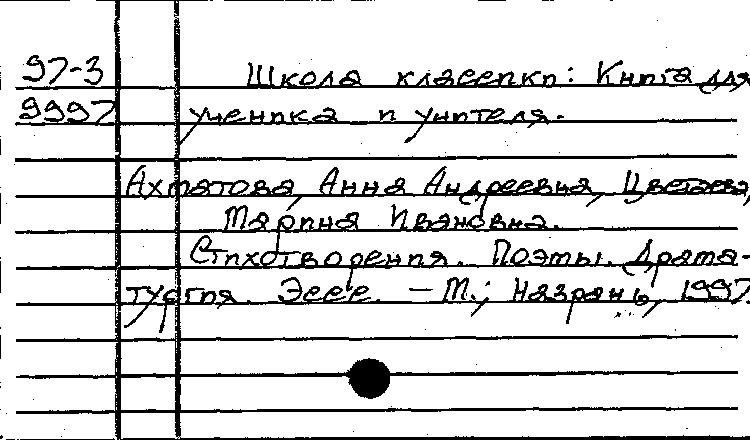 97-3 Школа классики: Книга для
9997 ученика и учителя.
Ахматова, Анна Андреевна, Цветаева,
Марина Ивановна.
Стихотворения. Поэмы. Драма-
тургия. Эссе. – М.; Назрань, 1997.